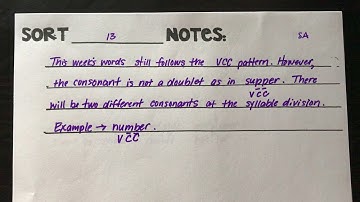 SORT 13 NOTES: SA
This week's words still follows the VCC pattern. However,
the consonant is not a doublet as in supper. There
VCC
will be two different consonants at the syllable division.
Example → number.
VCC